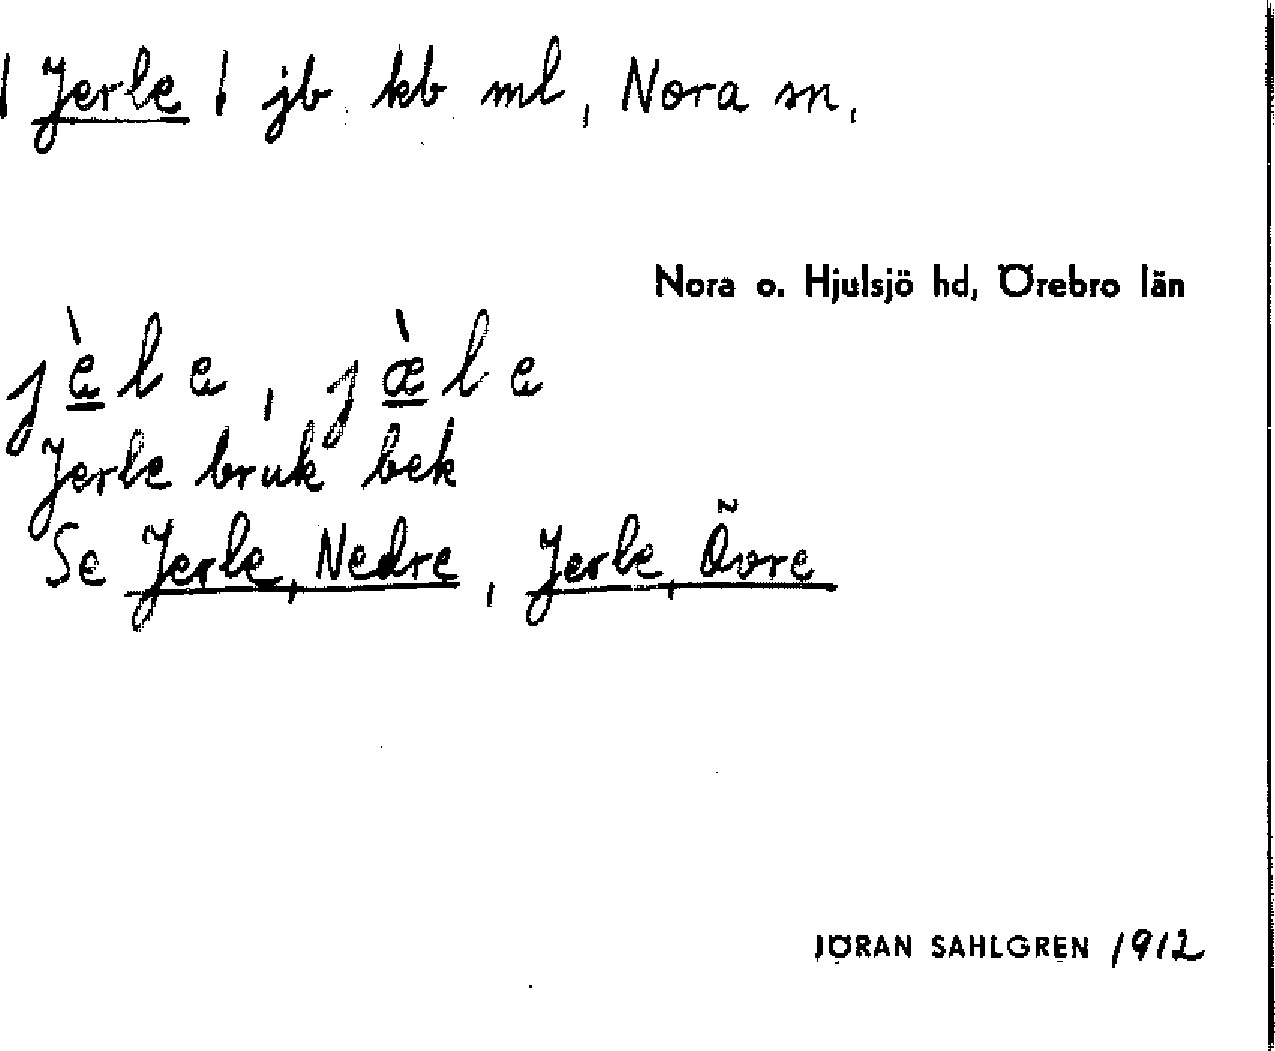 | Jerle | jb kb ml, Nora sn,
Nora o. Hjulsjö hd, Örebro län
jèle, jæ̀le
Jerle bruk bek
Se Jerle, Nedre, Jerle, Övre
JÖRAN SAHLGREN 1912